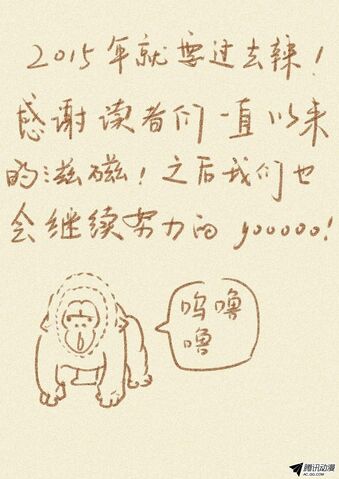 2015年就要过去辣!
感谢读者们一直以来
的滋磁!之后我们也
会继续努力的 yooooo!
呜噜
噜
腾讯动漫
AC.QQ.COM